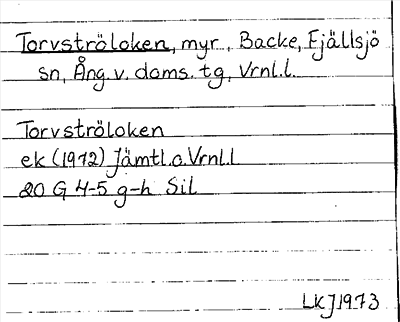 Torvströloken, myr, Backe, Fjällsjö
sn, Ång. v. doms. tg, Vrnl.l.
Torvströloken
ek (1972) Jämtl.o.Vrnl.l
20 G 4-5 g-h Sil
LKJ1973